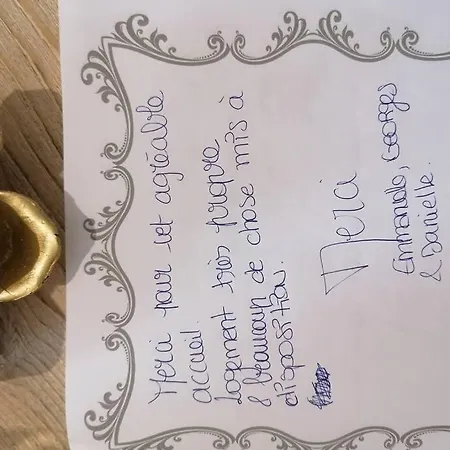 Merci pour cet agréable
accueil.
Logement très propre
& beaucoup de chose mis à
disposition.
Merci
Emmanuelle, Georges
& Danielle.